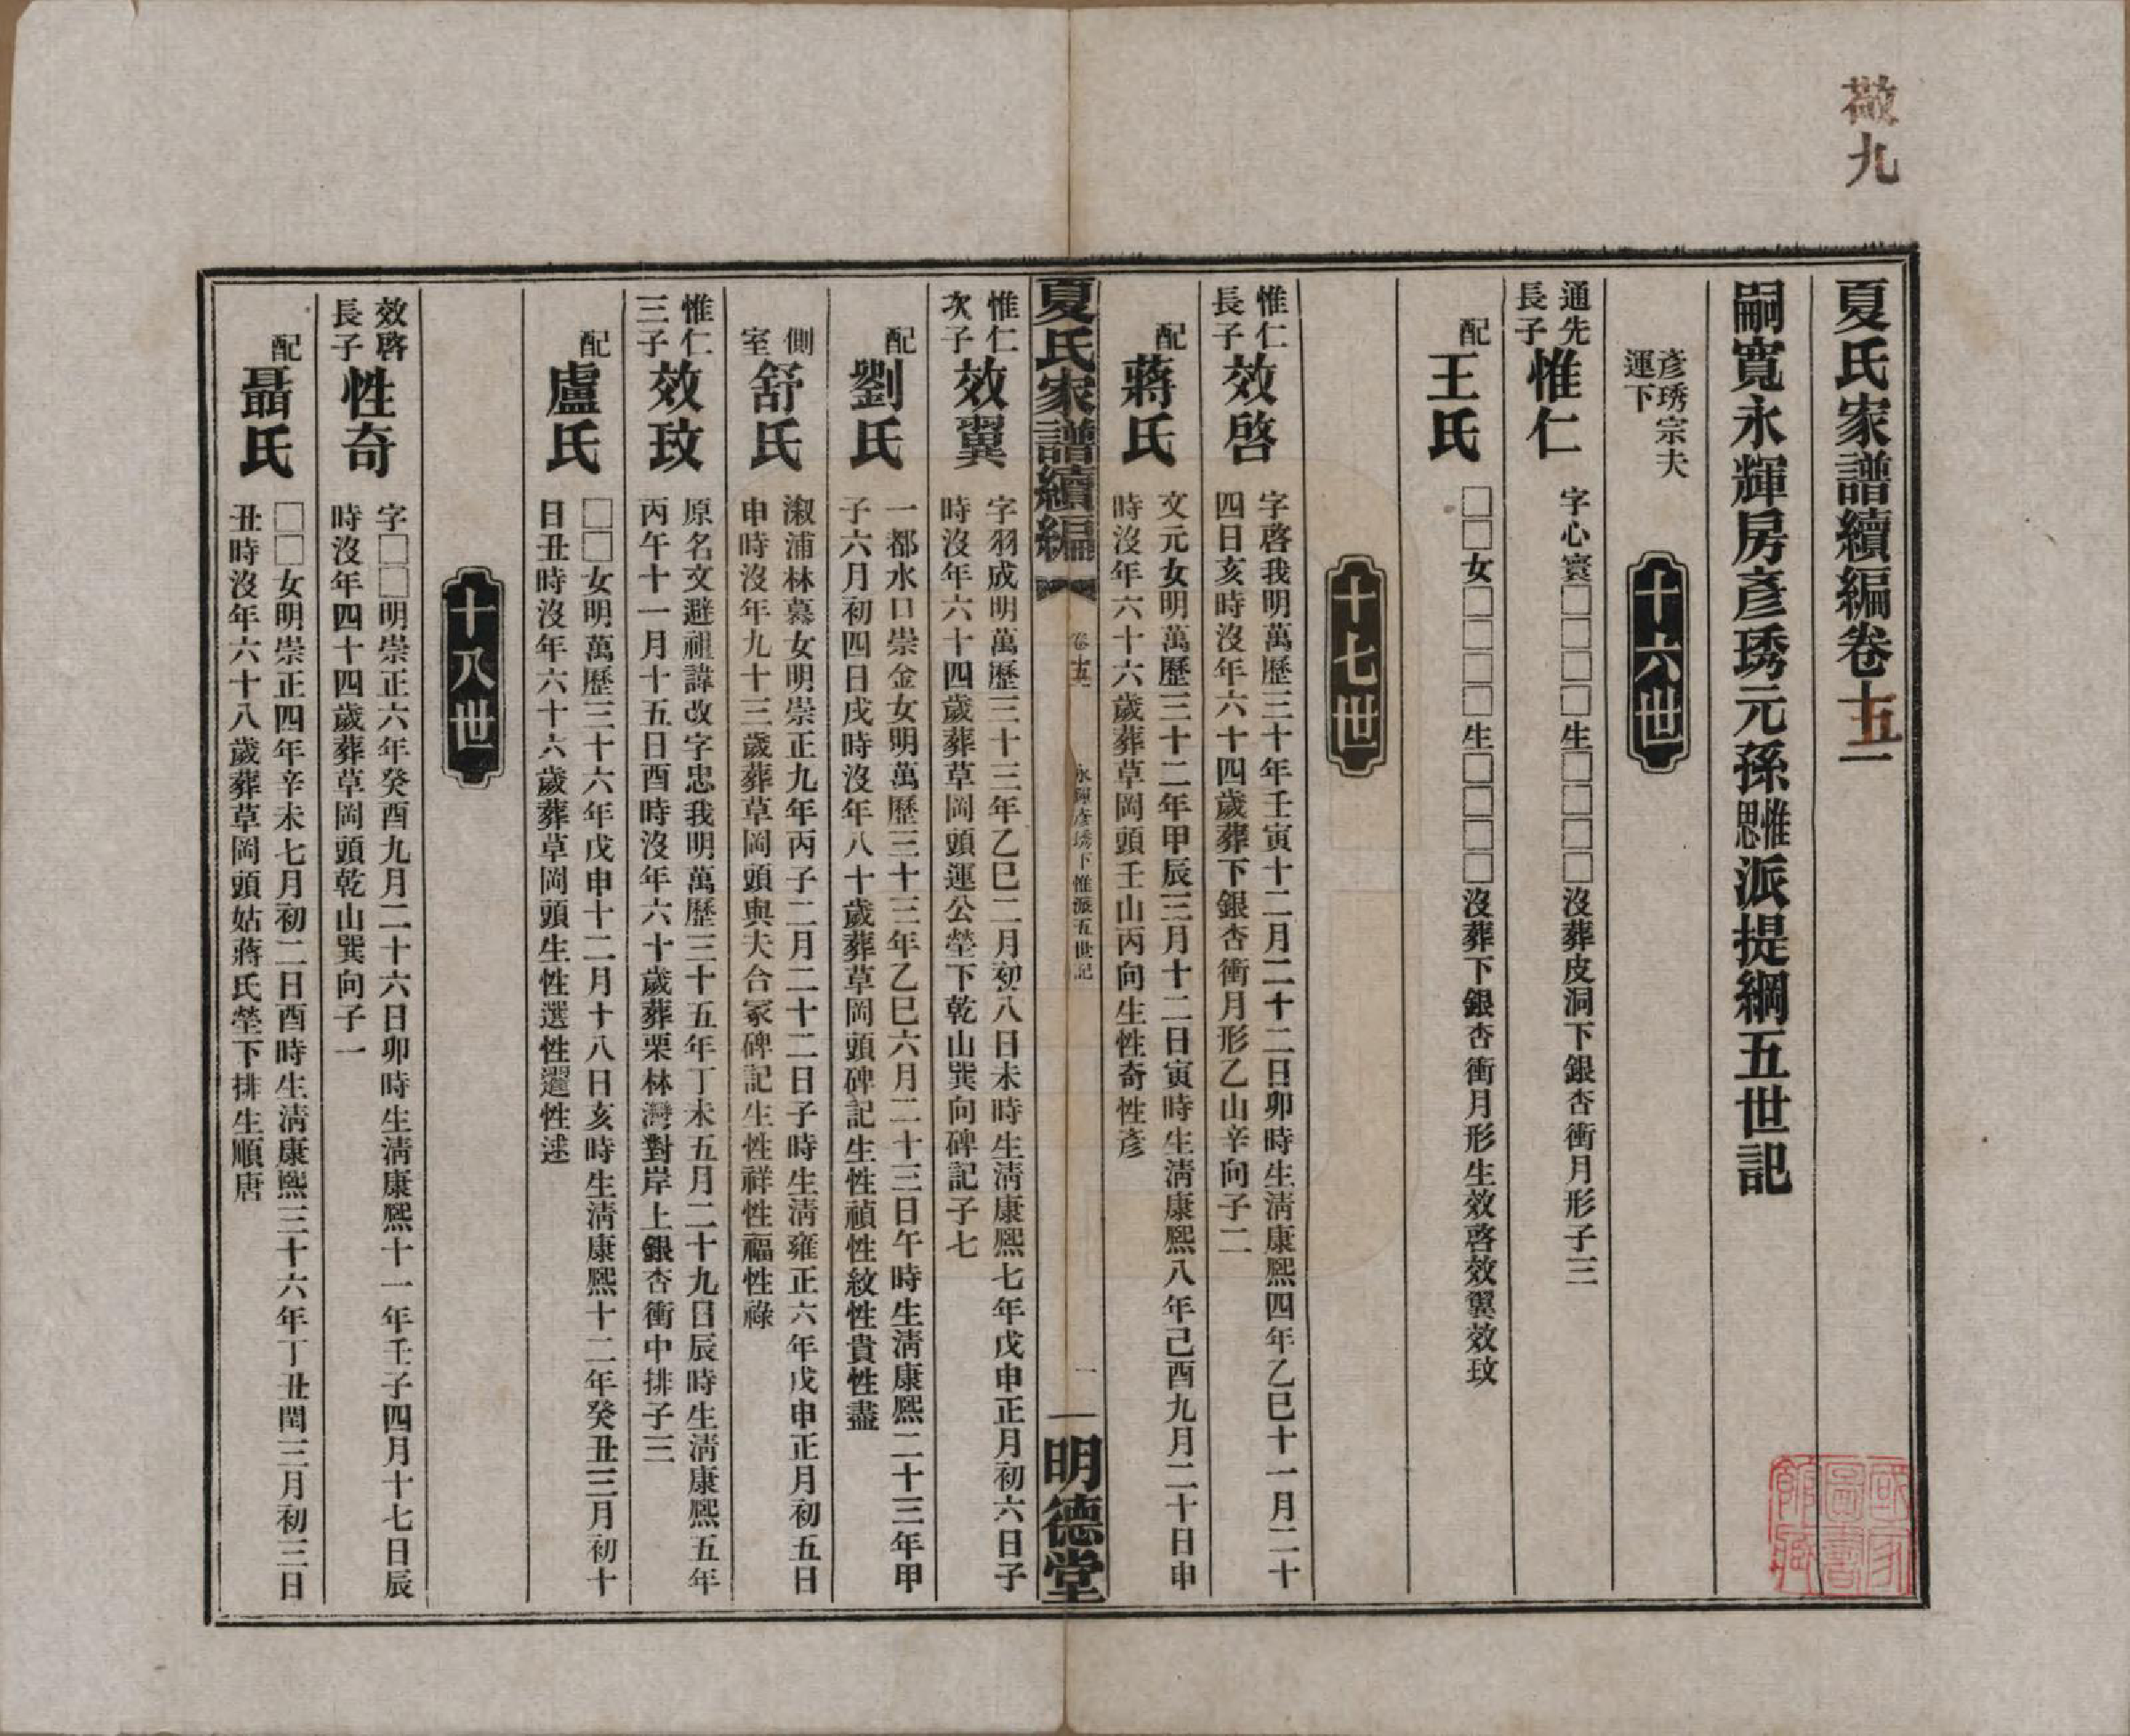 敬九
夏氏家譜續編卷十五一
嗣寬永輝房彥琇元孫惟思派提綱五世記
彥琇宗夫
運下
十六世
通先
長子
惟仁
字心寰□□□□生□□□□沒葬皮洞下銀杏衝月形子三
配
王氏
□□女□□□□生□□□□沒葬下銀杏衝月形生效啓效翼效玟
十七世
惟仁
長子
效啓
字啓我明萬歷三十年壬寅十二月二十二日卯時生清康熙四年乙巳十一月二十
四日亥時沒年六十四歲葬下銀杏衝月形乙山辛向子二
配
蔣氏
文元女明萬歷三十二年甲辰三月十二日寅時生清康熙八年己酉九月二十日申
時沒年六十六歲葬草岡頭壬山丙向生性奇性彥
夏氏家譜續編
卷十五
永輝彥琇下惟派五世記
一
明德堂
惟仁
次子
效翼
字羽成明萬歷三十三年乙巳二月初八日未時生清康熙七年戊申正月初六日子
時沒年六十四歲葬草岡頭運公塋下乾山巽向碑記子七
配
劉氏
一都水口崇金女明萬歷三十三年乙巳六月二十三日午時生清康熙二十三年甲
子六月初四日戌時沒年八十歲葬草岡頭碑記生性禎性紋性貴性盡
側
室
舒氏
溆浦林慕女明崇正九年丙子二月二十二日子時生清雍正六年戊申正月初五日
申時沒年九十三歲葬草岡頭與夫合冢碑記生性祥性福性祿
惟仁
三子
效玟
原名文避祖諱改字忠我明萬歷三十五年丁未五月二十九日辰時生清康熙五年
丙午十一月十五日酉時沒年六十歲葬栗林灣對岸上銀杏衝中排子三
配
盧氏
□□女明萬歷三十六年戊申十二月十八日亥時生清康熙十二年癸丑三月初十
日丑時沒年六十六歲葬草岡頭生性選性選性述
十八世
效啓
長子
性奇
字□□明崇正六年癸酉九月二十六日卯時生清康熙十一年壬子四月十七日辰
時沒年四十四歲葬草岡頭乾山巽向子一
配
聶氏
□□女明崇正四年辛未七月初二日酉時生清康熙三十六年丁丑閏三月初三日
丑時沒年六十八歲葬草岡頭姑蔣氏塋下排生順唐
國家圖書館藏